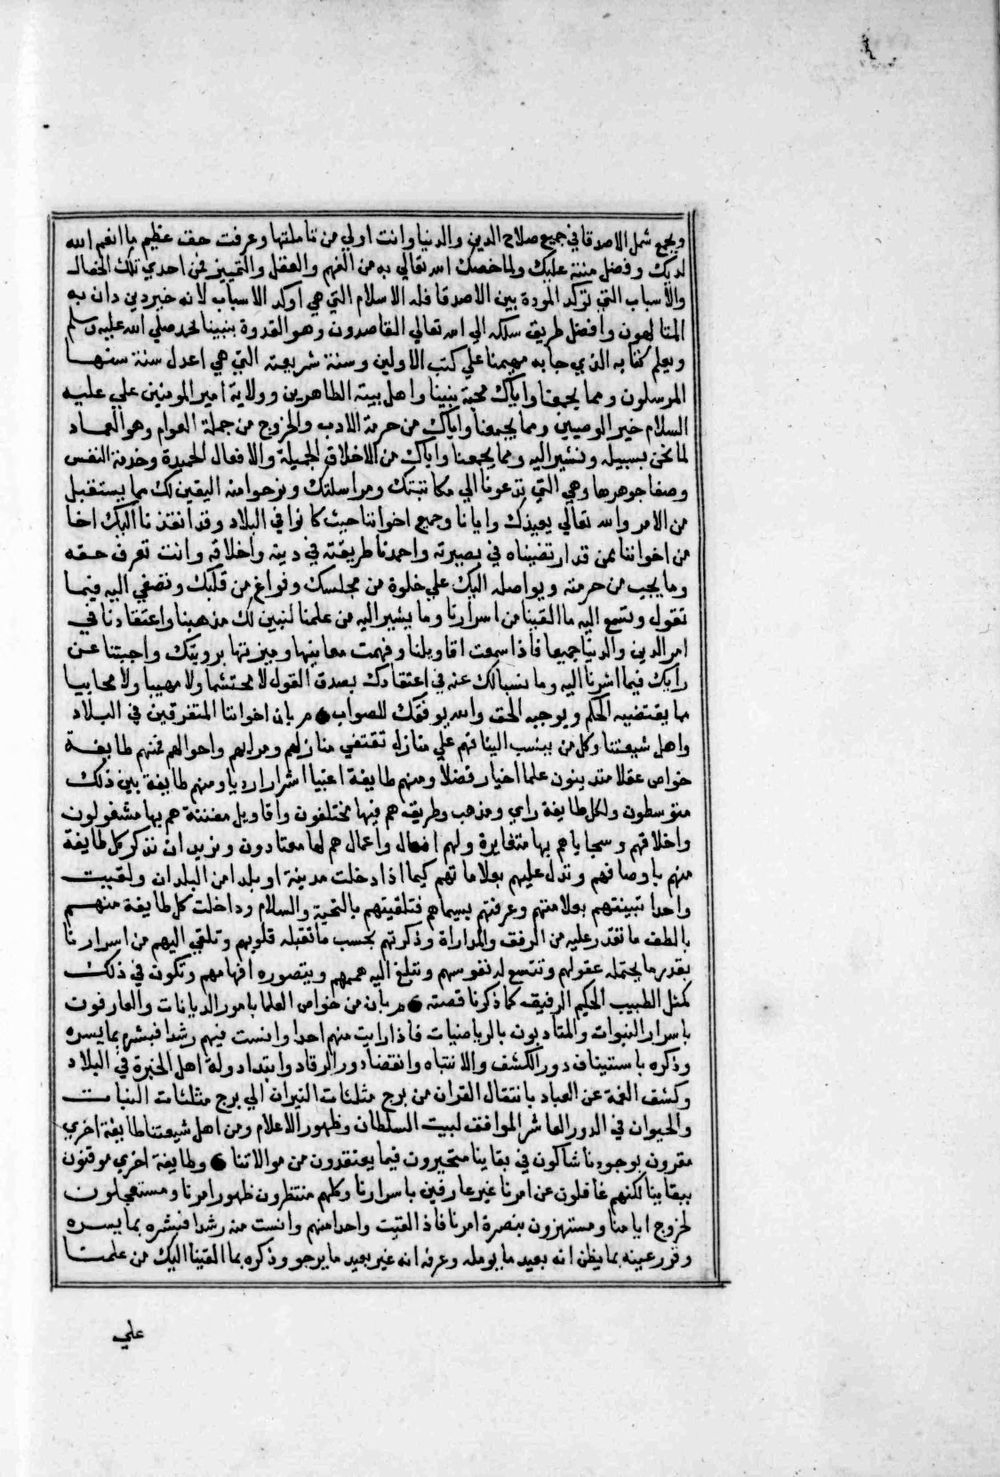 ويجمع شمل الاصدقا في جميع صلاح الدين والدنيا وانت اولي من تاملتها وعرفت حق عظيم ما انعم الله
لديك وفضل مننه عليك ولما خصك الله تعالي به من الفهم والعقل والتمييز نحن احدي تلك الخصال
والاسباب التي توكد المودة بين الاصدقا فله الاسلام التي هي اوكد الاسباب لانه خير دين دان به
المتالهون وافضل طريق سلكه الي الله تعالي القاصدون وهو القدوة بنبينا محمد صلي الله عليه وسلم
وبعلم كتابه الذي جا به مهيمنا علي كتب الاولين وسنة شريعته التي هي اعدل سنة سنها
المرسلون ومما يجمعنا واياك محبة نبينا واهل بيته الطاهرين وولاية امير المومنين علي عليه
السلام خير الوصيين ومما يجمعنا واياك من حرمة الادب والخروج من جملة العوام وهو العماد
لما نحن بسبيله ونشير اليه ومما يجمعنا واياك من الاخلاق الجميلة والافعال الحميدة وخدمة النفس
وصفا جوهرها وهي التي تدعونا الي مكاتبتك ومراسلتك ونرجوا منه اليقين لك مما يستقبل
من الامر والله تعالي يعيذك وايانا وجميع اخواننا حيث كانوا في البلاد وقد انفذنا اليك اخا
من اخواننا ممن قد ارتضيناه في بصيرته واحمدنا طريقته في دينه واخلاقه وانت تعرف حقه
وما يجب من حرمته ويواصله اليك علي خلوة من مجلسك وفراغ من قلبك وتصغي اليه فيما
تقول وتسمع اليه ما القينا من اسرارنا وما يشير اليه من علمنا لنبين لك مذهبنا واعتقادنا في
امر الدين والدنيا جميعا فاذا سمعت اقاويلنا وفهمت معانيها وميزتها برويتك واجبتنا عن
رايك فيما اشرنا اليه وما نسالك عنه في اعتقادك بصدق القول لا محتشما ولا مهيبا ولا محابيا
مما يقتضيه الحكم ويوجبه الحق والله يوفقك للصواب مر بان اخواننا المتفرقين في البلاد
واهل شيعتنا وكل من ينسب الينا فهم علي منازل تقتفي منازلهم ومراتبهم واحوالهم فمنهم طايفة
خواص عقلا متدينون علما اخيار فضلا ومنهم طايفة اغنيا اشرار اردياء ومنهم طايفة بين ذلك
متوسطون ولكل طايفة راي ومذهب وطريق هم فيها مختلفون واقاويل مفننة هم بها مشغولون
واخلاقهم وسجاياهم بها متغايرة ولهم افعال واعمال هم لها معتادون ونريد ان نذكر كل طايفة
منهم باوصافهم وتدل عليهم بعلاماتهم كيما اذا دخلت مدينة او بلدا من البلدان ولقيت
واحدا تبينتهم بعلامتهم وعرفتهم بسيماهم فتلقيتهم بالتحية والسلام وداخلت كل طايفة منهم
بالطف ما تقدر عليه من الرفق والمداراة وذكرتهم بحسب ما تقبله قلوبهم وتلقي اليهم من اسرارنا
بقدر ما يحتمله عقولهم وتتسع له نفوسهم وتبلغ اليه هممهم ويتصوره افهامهم وتكون في ذلك
كمثل الطبيب الحكيم الرفيق كما ذكرنا قصته مر بان من خواص العلما بامور الديانات والعارفون
باسرار النبوات والمتادبون بالرياضيات فاذا رايت منهم احدا وانست فيهم رشدا فبشرهم بما يسره
وذكره باستيناف دور الكشف والانتباه وانقضا دور الرقاد وابتدا دولة اهل الخيرة في البلاد
وكشف الغمة عن العباد بانتقال القران من برج مثلثات النيران الي برج مثلثات النبات
والحيوان في الدور العاشر الموافق لبيت السلطان وظهور الاعلام ومن اهل شيعتنا طايفة اخري
مقرون بوجودنا شاكون في بقاينا متحيرون فيما يعتقدون من موالاتنا وطايفة اخري موقنون
ببقاينا لكنهم غافلون عن امرنا غير عارفين باسرارنا وكلهم منتظرون ظهور امرنا ومستعجلون
لخروج ايامنا ومستهزون بنصرة امرنا فاذا لقيت واحدا منهم وانست منه رشدا فبشره بما يسره
وقرر عينه بما يظن انه بعيد ما يومله وعرفه انه غير بعيد ما يرجو وذكره بما القينا اليك من علمنا
علي